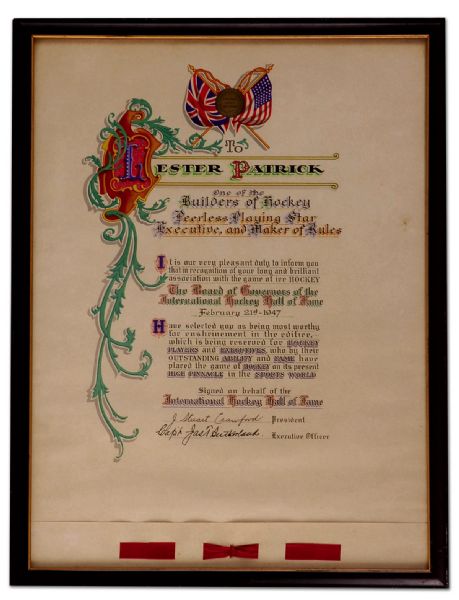 To
LESTER PATRICK
One of the
Builders of Hockey
Peerless Playing Star
Executive, and Maker of Rules
It is our very pleasant duty to inform you
that in recognition of your long and brilliant
association with the game of ice HOCKEY
The Board of Governors of the
International Hockey Hall of Fame
February 21st 1947
Have selected you as being most worthy
for enshrinement in the edifice,
which is being reserved for HOCKEY
PLAYERS and EXECUTIVES, who by their
OUTSTANDING ABILITY and FAME have
placed the game of HOCKEY on its present
HIGH PINNACLE in the SPORTS WORLD
Signed on behalf of the
International Hockey Hall of Fame
J. Stuart Crawford President
Capt. Jas T Sutherland. Executive Officer